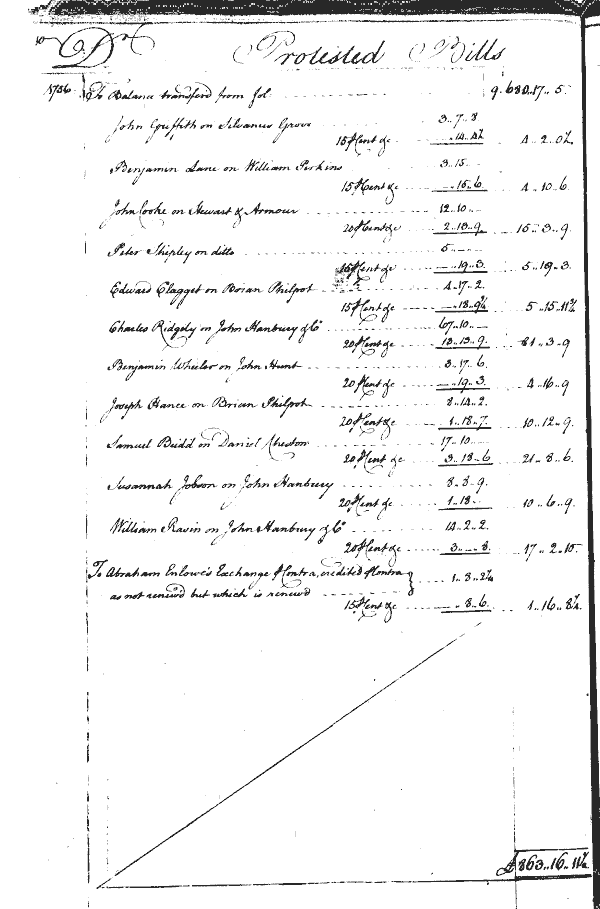 10 Dr Protested Bills
1756 To Balance transferd from fol 9.. 680..17..5
John Griffith on Silvanus Grove 3..7..8
15 P Cent &c —..14..4½ 4..2..0½
Benjamin Lane on William Perkins 3..15..—
15 P Cent &c —..15..6 4..10..6
John Cooke on Stewart & Armour 12..10..—
20 P Cent &c 2..13..9 15..3..9
Peter Shipley on ditto 5..—..—
15 P Cent &c —..19..3 5..19..3
Edward Clagget on Brian Philpot 4..17..2
15 P Cent &c —..18..9¾ 5..15..11¾
Charles Ridgely on John Hanbury & Co 67..10..—
20 P Cent &c 13..13..9 81..3..9
Benjamin Wheeler on John Hunt 3..17..6
20 P Cent &c —..19..3 4..16..9
Joseph Hance on Brian Philpot 8..14..2
20 P Cent &c 1..18..7 10..12..9
Samuel Budd on Daniel Cheston 17..10..—
20 P Cent &c 3..18..6 21..8..6
Susannah Jobson on John Hanbury 8..8..9
20 P Cent &c 1..18..— 10..6..9
William Ravin on John Hanbury & Co 14..2..2
20 P Cent &c 3..—..8 17..2..10
To Abraham Enlowe's Exchange P Contra, credited P Contra 1..8..2¼
as not renewd but which is renewd
15 P Cent &c —..8..6 1..16..8¼
£ 863..16..11½